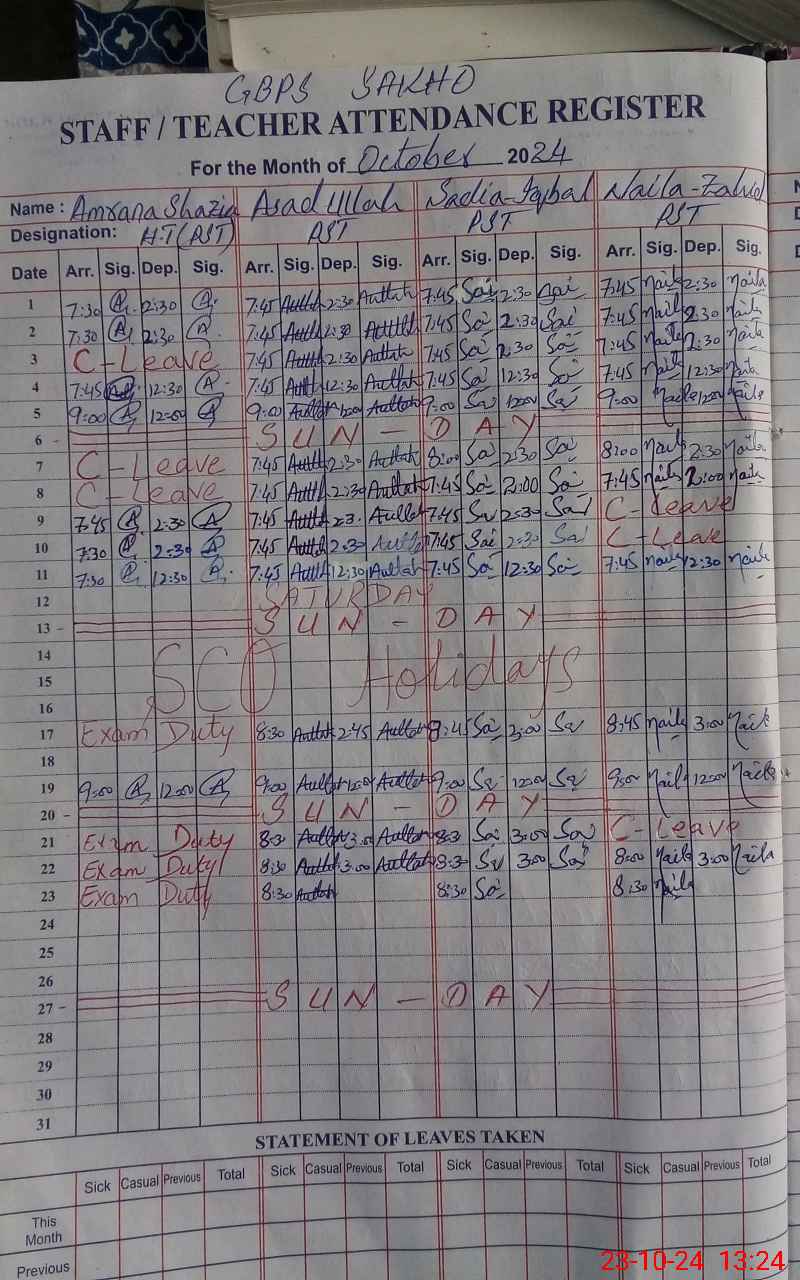 GBPS SAKHO
STAFF / TEACHER ATTENDANCE REGISTER
For the Month of October 2024
Name : Amrana Shazia Asad Ullah Sadia-Iqbal Naila-Zahid
Designation: H.T (PST) PST PST PST
Date Arr. Sig. Dep. Sig. Arr. Sig. Dep. Sig. Arr. Sig. Dep. Sig. Arr. Sig. Dep. Sig.
1 7:30 2:30 7:45 2:30 7:45 Sai 2:30 Sai 7:45 Naila 2:30 Naila
2 7:30 2:30 7:45 2:30 7:45 Sai 2:30 Sai 7:45 Naila 2:30 Naila
3 C-Leave 7:45 2:30 7:45 Sai 2:30 Sai 7:45 Naila 2:30 Naila
4 7:45 12:30 7:45 12:30 7:45 Sai 12:30 Sai 7:45 Naila 12:30 Naila
5 9:00 12:00 9:00 1200 9:00 Sai 1200 Sai 9:00 Naila 1200 Naila
6 - SUN - DAY
7 C-Leave 7:45 2:30 8:00 Sai 2:30 Sai 8:00 Naila 2:30 Naila
8 C-Leave 7:45 2:30 7:45 Sai 2:00 Sai 7:45 Naila 2:00 Naila
9 7:45 2:30 7:45 7:45 Sai 2:30 Sai C-Leave
10 7:30 2:30 7:45 2:30 7:45 Sai 2:30 Sai C-Leave
11 7:30 12:30 7:45 12:30 7:45 Sai 12:30 Sai 7:45 Naila 12:30 Naila
12 SATURDAY
13 - SUN - DAY
14
15 SCO Holidays
16
17 Exam Duty 8:30 2:45 8:45 Sai 3:00 Sai 8:45 Naila 3:00 Naila
18
19 9:00 12:00 9:00 9:00 Sai 1200 Sai 9:00 Naila 1200 Naila
20 - SUN - DAY
21 Exam Duty 8:30 3:00 8:30 Sai 3:00 Sai C-Leave
22 Exam Duty 8:30 3:00 8:30 Sai 3:00 Sai 8:00 Naila 3:00 Naila
23 Exam Duty 8:30 8:30 Sai 8:30 Naila
24
25
26
27 - SUN - DAY
28
29
30
31
STATEMENT OF LEAVES TAKEN
Sick Casual Previous Total Sick Casual Previous Total Sick Casual Previous Total Sick Casual Previous Total
This
Month
Previous
23-10-24 13:24